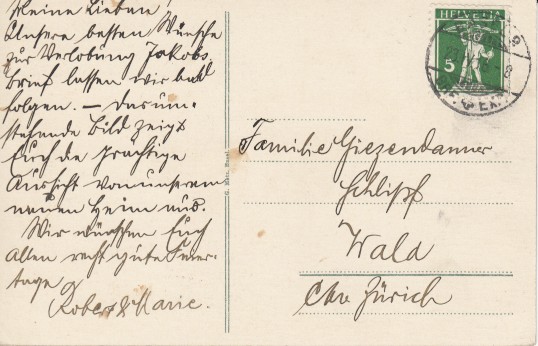 Meine Lieben!
Unsere besten Wünsche
zur Verlobung Jakobs
brief lassen wir bald
folgen. — Das um-
stehende Bild zeigt
Euch die prächtige
Aussicht von unserem
neuen Heim aus.
Wir wünschen Euch
Allen recht gute Feier-
tage
Robert & Marie.
HELVETIA
5
Familie Giezendanner
Schlipf
Wald
Ctn Zürich